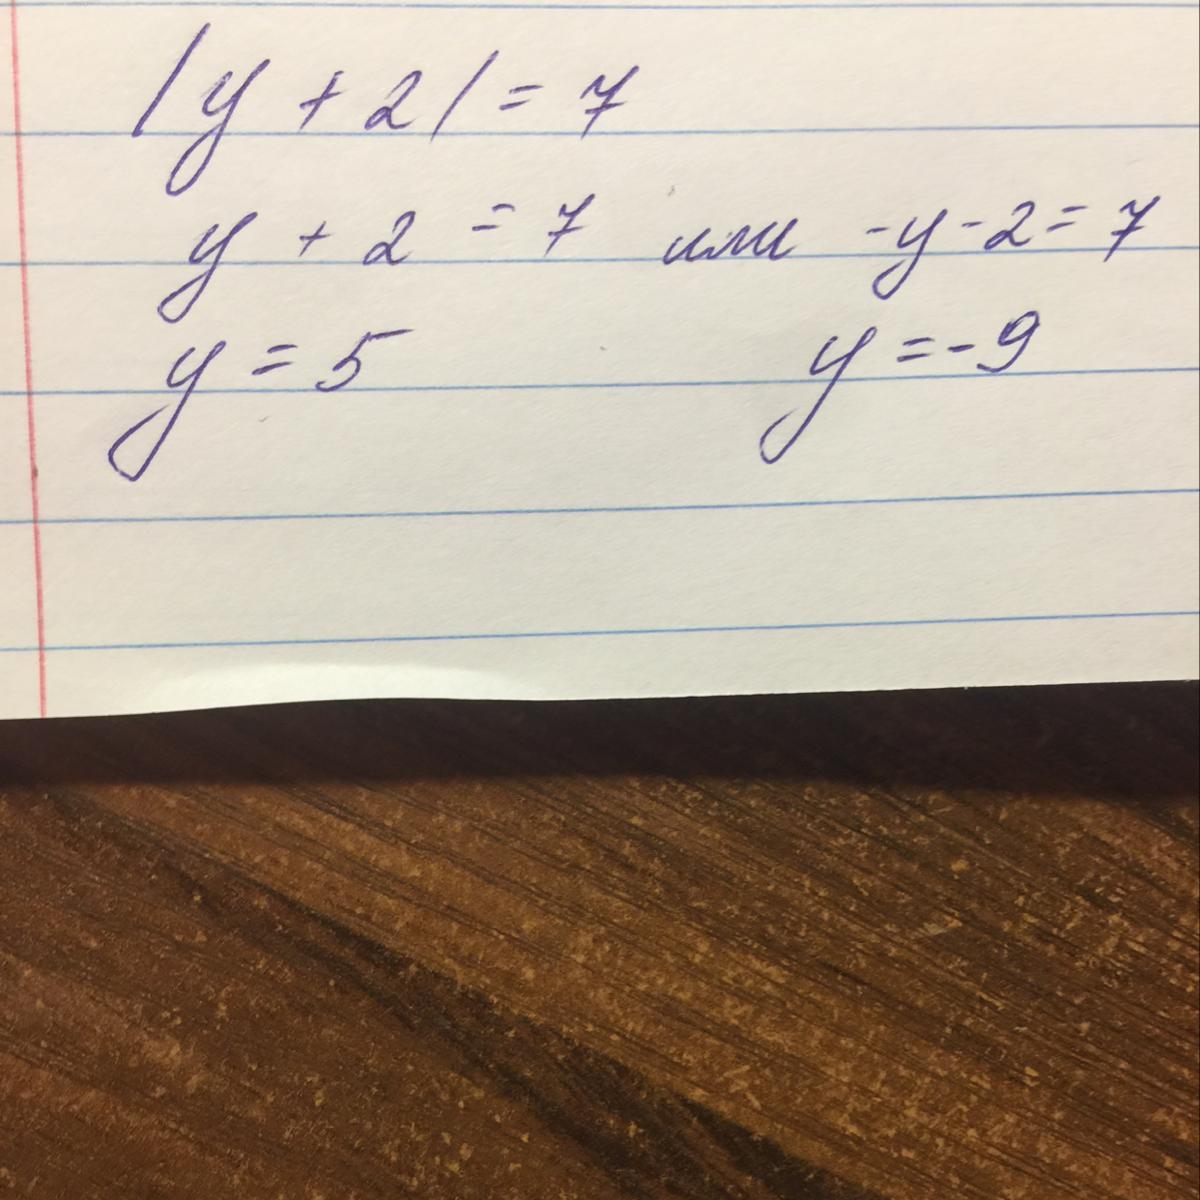 |y + 2| = 7
y + 2 = 7 или -y - 2 = 7
y = 5 y = -9